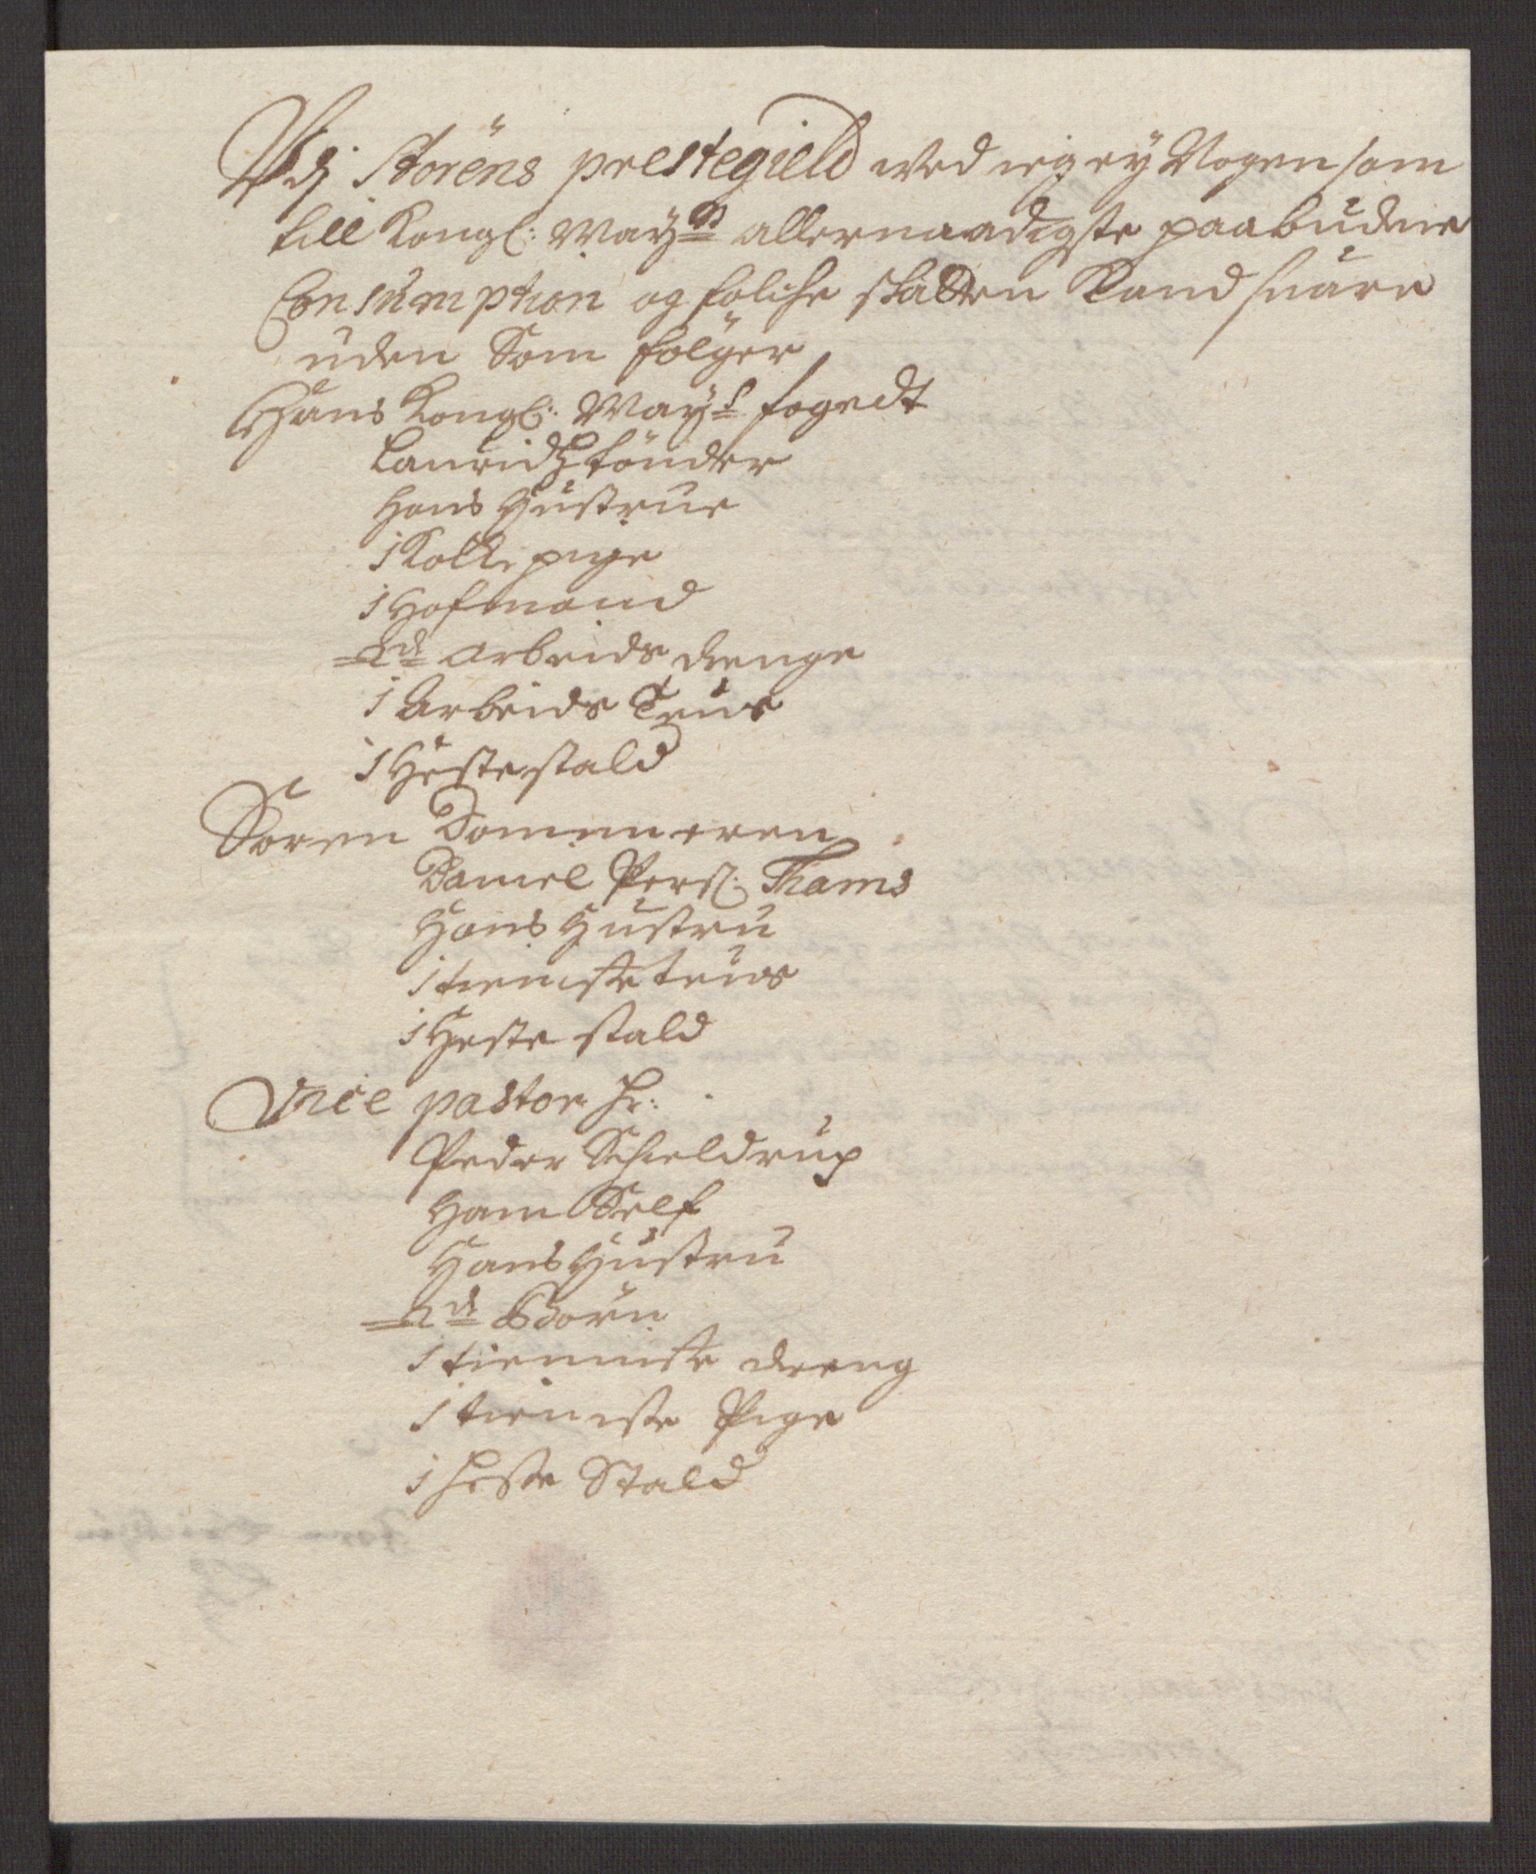 Udj Størens prestegield wed ieg ey Nogen som
till Kongl: Mayts allernaadigste paabudene
Consumption og folche skatten kand suare
uden Som følger
Hans Kongl: Mays fogedt
Lauridtz tønder
Hans Hustrue
1 Kocke pige
1 Hofmand
2de arbeids drenge
1 Arbeids Teus
1 Hestestald
Soren
Daniel Pers: Thams
Hans Hustru
1 tieniste teus
1 Heste stald
Vice pastor hr:
Peder Schieldrup
Ham Self
Hans Hustru
2de Børn
1 tienniste dreng
1 tieniste Pige
1 heste Stald